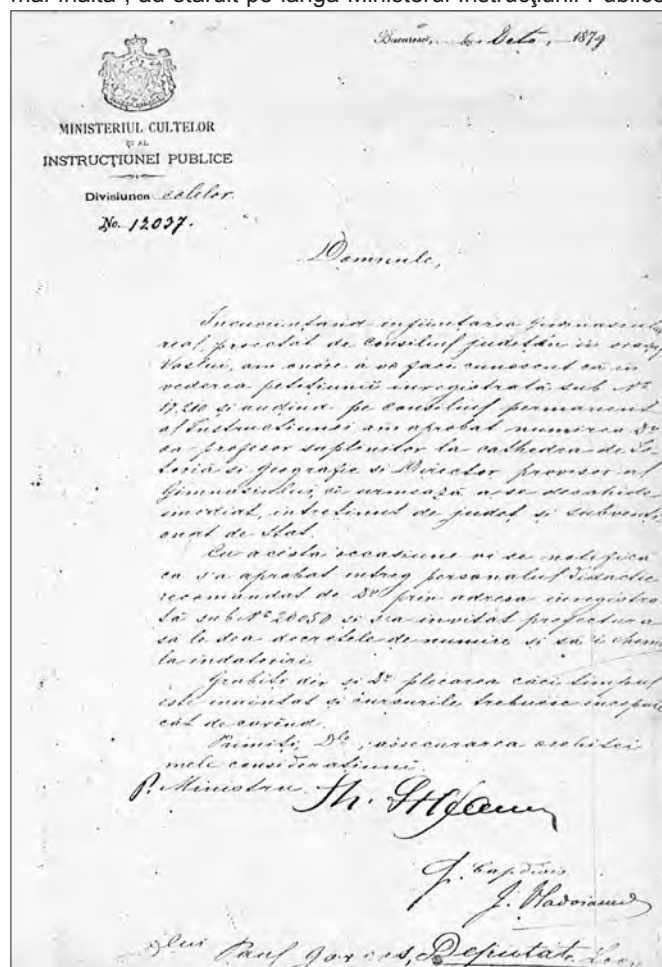 mai înaltă", au stăruit pe lângă Ministerul Instrucţiunii Publice
Bucuresci, 6 Octo, 1879
MINISTERIUL CULTELOR
ŞI AL
INSTRUCŢIUNEI PUBLICE
Divisiunea scólelor
No. 12037.
Domnule,
Incuviintând infiintarea Gimnasiului
real, proectat de consiliul judetén in orasul
Vaslui, am onóre a vĕ face cunoscut că in
vederea petitiunii inregistrată sub No
17,210 si audind pe consiliul permanent
al Instructiunei am aprobat numirea Dv
ca profesor suplinitor la cathedra de Is-
toria si Geografie si Director provisor al
Gimnasiului, ce urmează a se deschide
imediat, intretinut de judet si subventi-
onat de Stat.
Cu acésta occasiune vi se notifică
ca s'a aprobat intreg personalul didactic
recomandat de Dv prin adresa inregistra-
tă sub No 20050 si s'a invitat prefectura
să le dea decretele de numire si să-i cheme
la indatoriri
Grabiti dér si Dv plecarea căci timpul
este inaintat si cursurile trebuesc incepute
cât de curênd.
Primiti, Dle, assecurarea osebitei
mele consideratiuni.
p. Ministru
Cap. divis
Dlui Paul Deputat